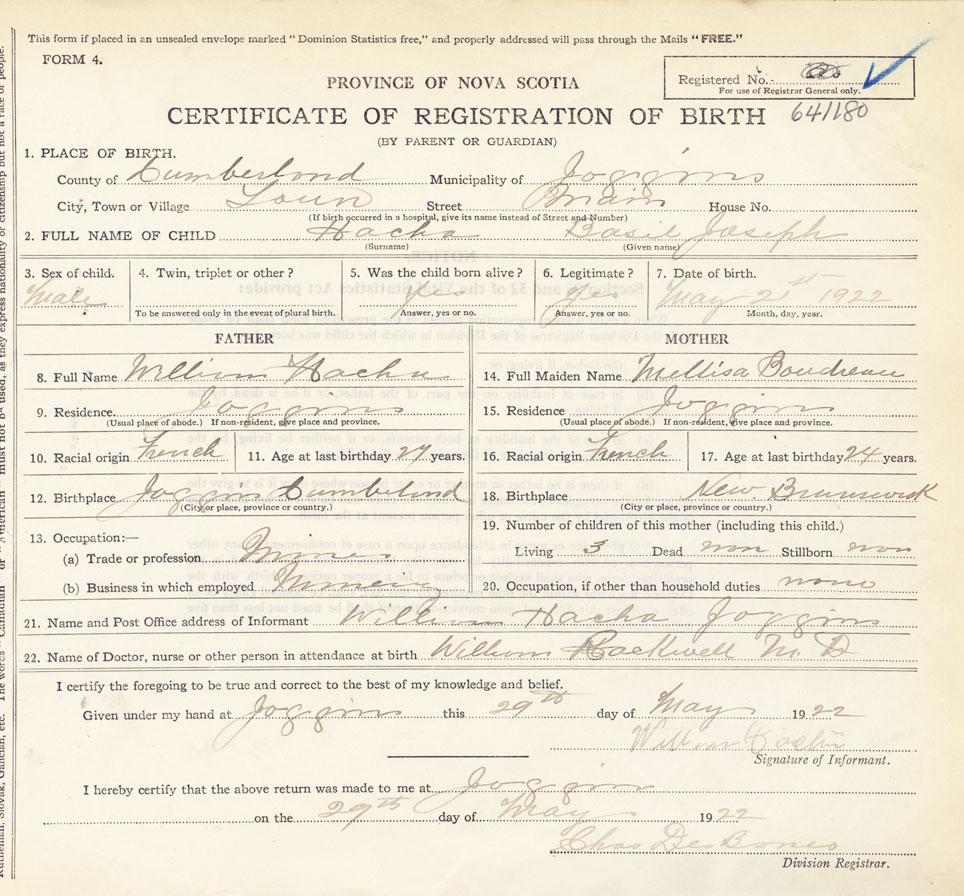 This form if placed in an unsealed envelope marked "Dominion Statistics free," and properly addressed will pass through the Mails "FREE."
FORM 4.
Registered No.
For use of Registrar General only.
PROVINCE OF NOVA SCOTIA
CERTIFICATE OF REGISTRATION OF BIRTH 641180
(BY PARENT OR GUARDIAN)
1. PLACE OF BIRTH.
County of Cumberlond Municipality of Joggins
City, Town or Village Town Street Main House No.
(If birth occurred in a hospital, give its name instead of Street and Number)
2. FULL NAME OF CHILD Hacha Basil Joseph
(Surname) (Given name)
3. Sex of child. 4. Twin, triplet or other? 5. Was the child born alive? 6. Legitimate? 7. Date of birth.
Male yes yes May 2st 1922
To be answered only in the event of plural birth. Answer, yes or no. Answer, yes or no. Month, day, year.
FATHER MOTHER
8. Full Name William Hacha 14. Full Maiden Name Mellisa Boudreau
9. Residence. Joggins 15. Residence Joggins
(Usual place of abode.) If non-resident, give place and province. (Usual place of abode.) If non-resident, give place and province.
10. Racial origin French 11. Age at last birthday 27 years. 16. Racial origin French 17. Age at last birthday 24 years.
12. Birthplace Joggins Cumberlond 18. Birthplace New Brunswick
(City or place, province or country.) (City or place, province or country.)
13. Occupation:— 19. Number of children of this mother (including this child.)
(a) Trade or profession Living 3 Dead non Stillborn non
(b) Business in which employed 20. Occupation, if other than household duties none
21. Name and Post Office address of Informant William Hacha Joggins
22. Name of Doctor, nurse or other person in attendance at birth William Rockwell M. D
I certify the foregoing to be true and correct to the best of my knowledge and belief.
Given under my hand at Joggins this 29th day of May 1922
William
Signature of Informant.
I hereby certify that the above return was made to me at Joggins
on the 29th day of May 1922
Chas
Division Registrar.